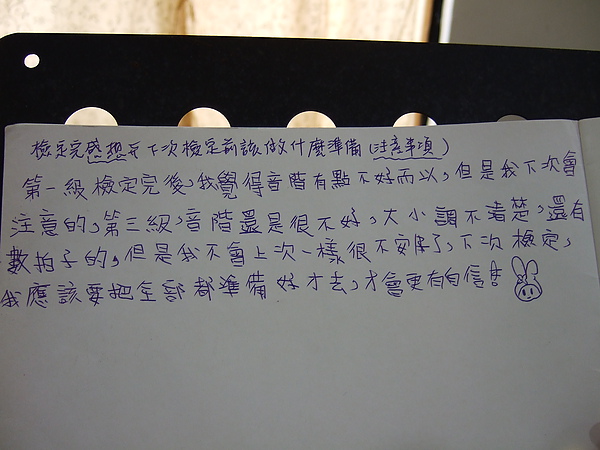 檢定完感想 & 下次檢定前該做什麼準備(注意事項)
第一級檢定完後,我覺得音階有點不好而以,但是我下次會
注意的,第三級,音階還是很不好,大小調不清楚,還有
數拍子的,但是我不會上次一樣很不安了,下次檢定,
我應該要把全部都準備好才去,才會更有自信!